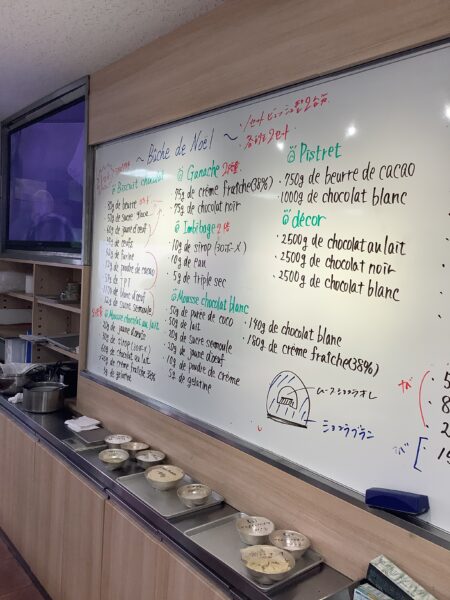 ~ Bûche de Noël ~
Biscuit chocolat
80g de beurre
50g de sucre glace
60g de jaune d'œuf
de farine
de poudre de cacao
de T.P.T
de blanc d'œuf
de sucre semoule
Mousse chocolat au lait
de jaune d'œuf
de sirop
de chocolat au lait
de crème fraîche 38%
5g de gélatine
Ganache 2倍量
95g de crème fraîche(38%)
75g de chocolat noir
Imbibage 2倍
10g de sirop (30ボーメ)
10g de eau
5g de triple sec
Mousse chocolat blanc
50g de purée de coco
50g de lait
20g de sucre semoule
20g de jaune d'œuf
10g de poudre de crème
5g de gélatine
140g de chocolat blanc
180g de crème fraîche(38%)
Pistret
750g de beurre de cacao
1000g de chocolat blanc
décor
2500g de chocolat au lait
2500g de chocolat noir
2500g de chocolat blanc
ムースショコラオレ
ショコラブラン